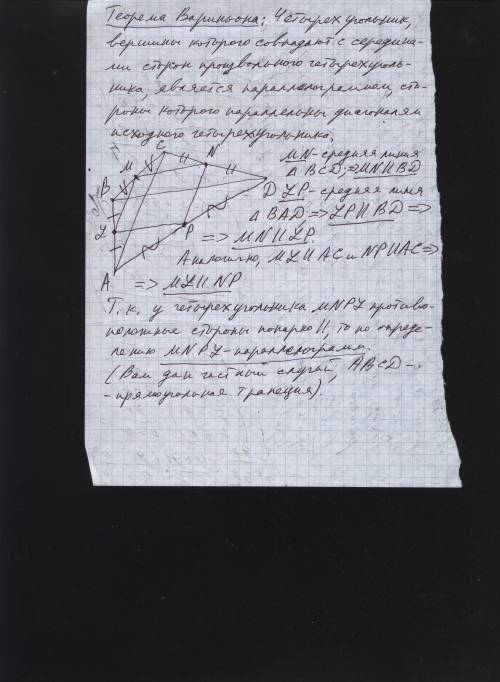 Теорема Вариньона: Четырехугольник,
вершины которого совпадают с середина-
ми сторон произвольного четырехуголь-
ника, является параллелограммом, сто-
роны которого параллельны диагоналям
исходного четырехугольника.
C
N
M
B
D
L
P
A
MN - средняя линия
△ BCD, ⇒ MN II BD
LP - средняя линия
△ BAD ⇒ LP II BD ⇒
⇒ MN II LP.
Аналогично, ML II AC и NP II AC ⇒
⇒ ML II NP
Т. к. у четырехугольника MNPL противо-
положные стороны попарно II, то по опреде-
лению MNPL - параллелограмм.
(Вам дан частный случай, ABCD -
- прямоугольная трапеция).